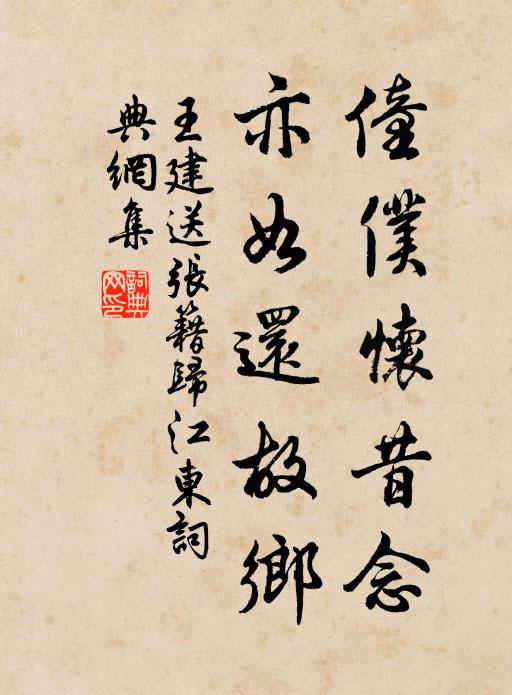 僮僕懷昔念
亦如還故鄉
王建送張籍歸江東詞
典網集
詞典网印